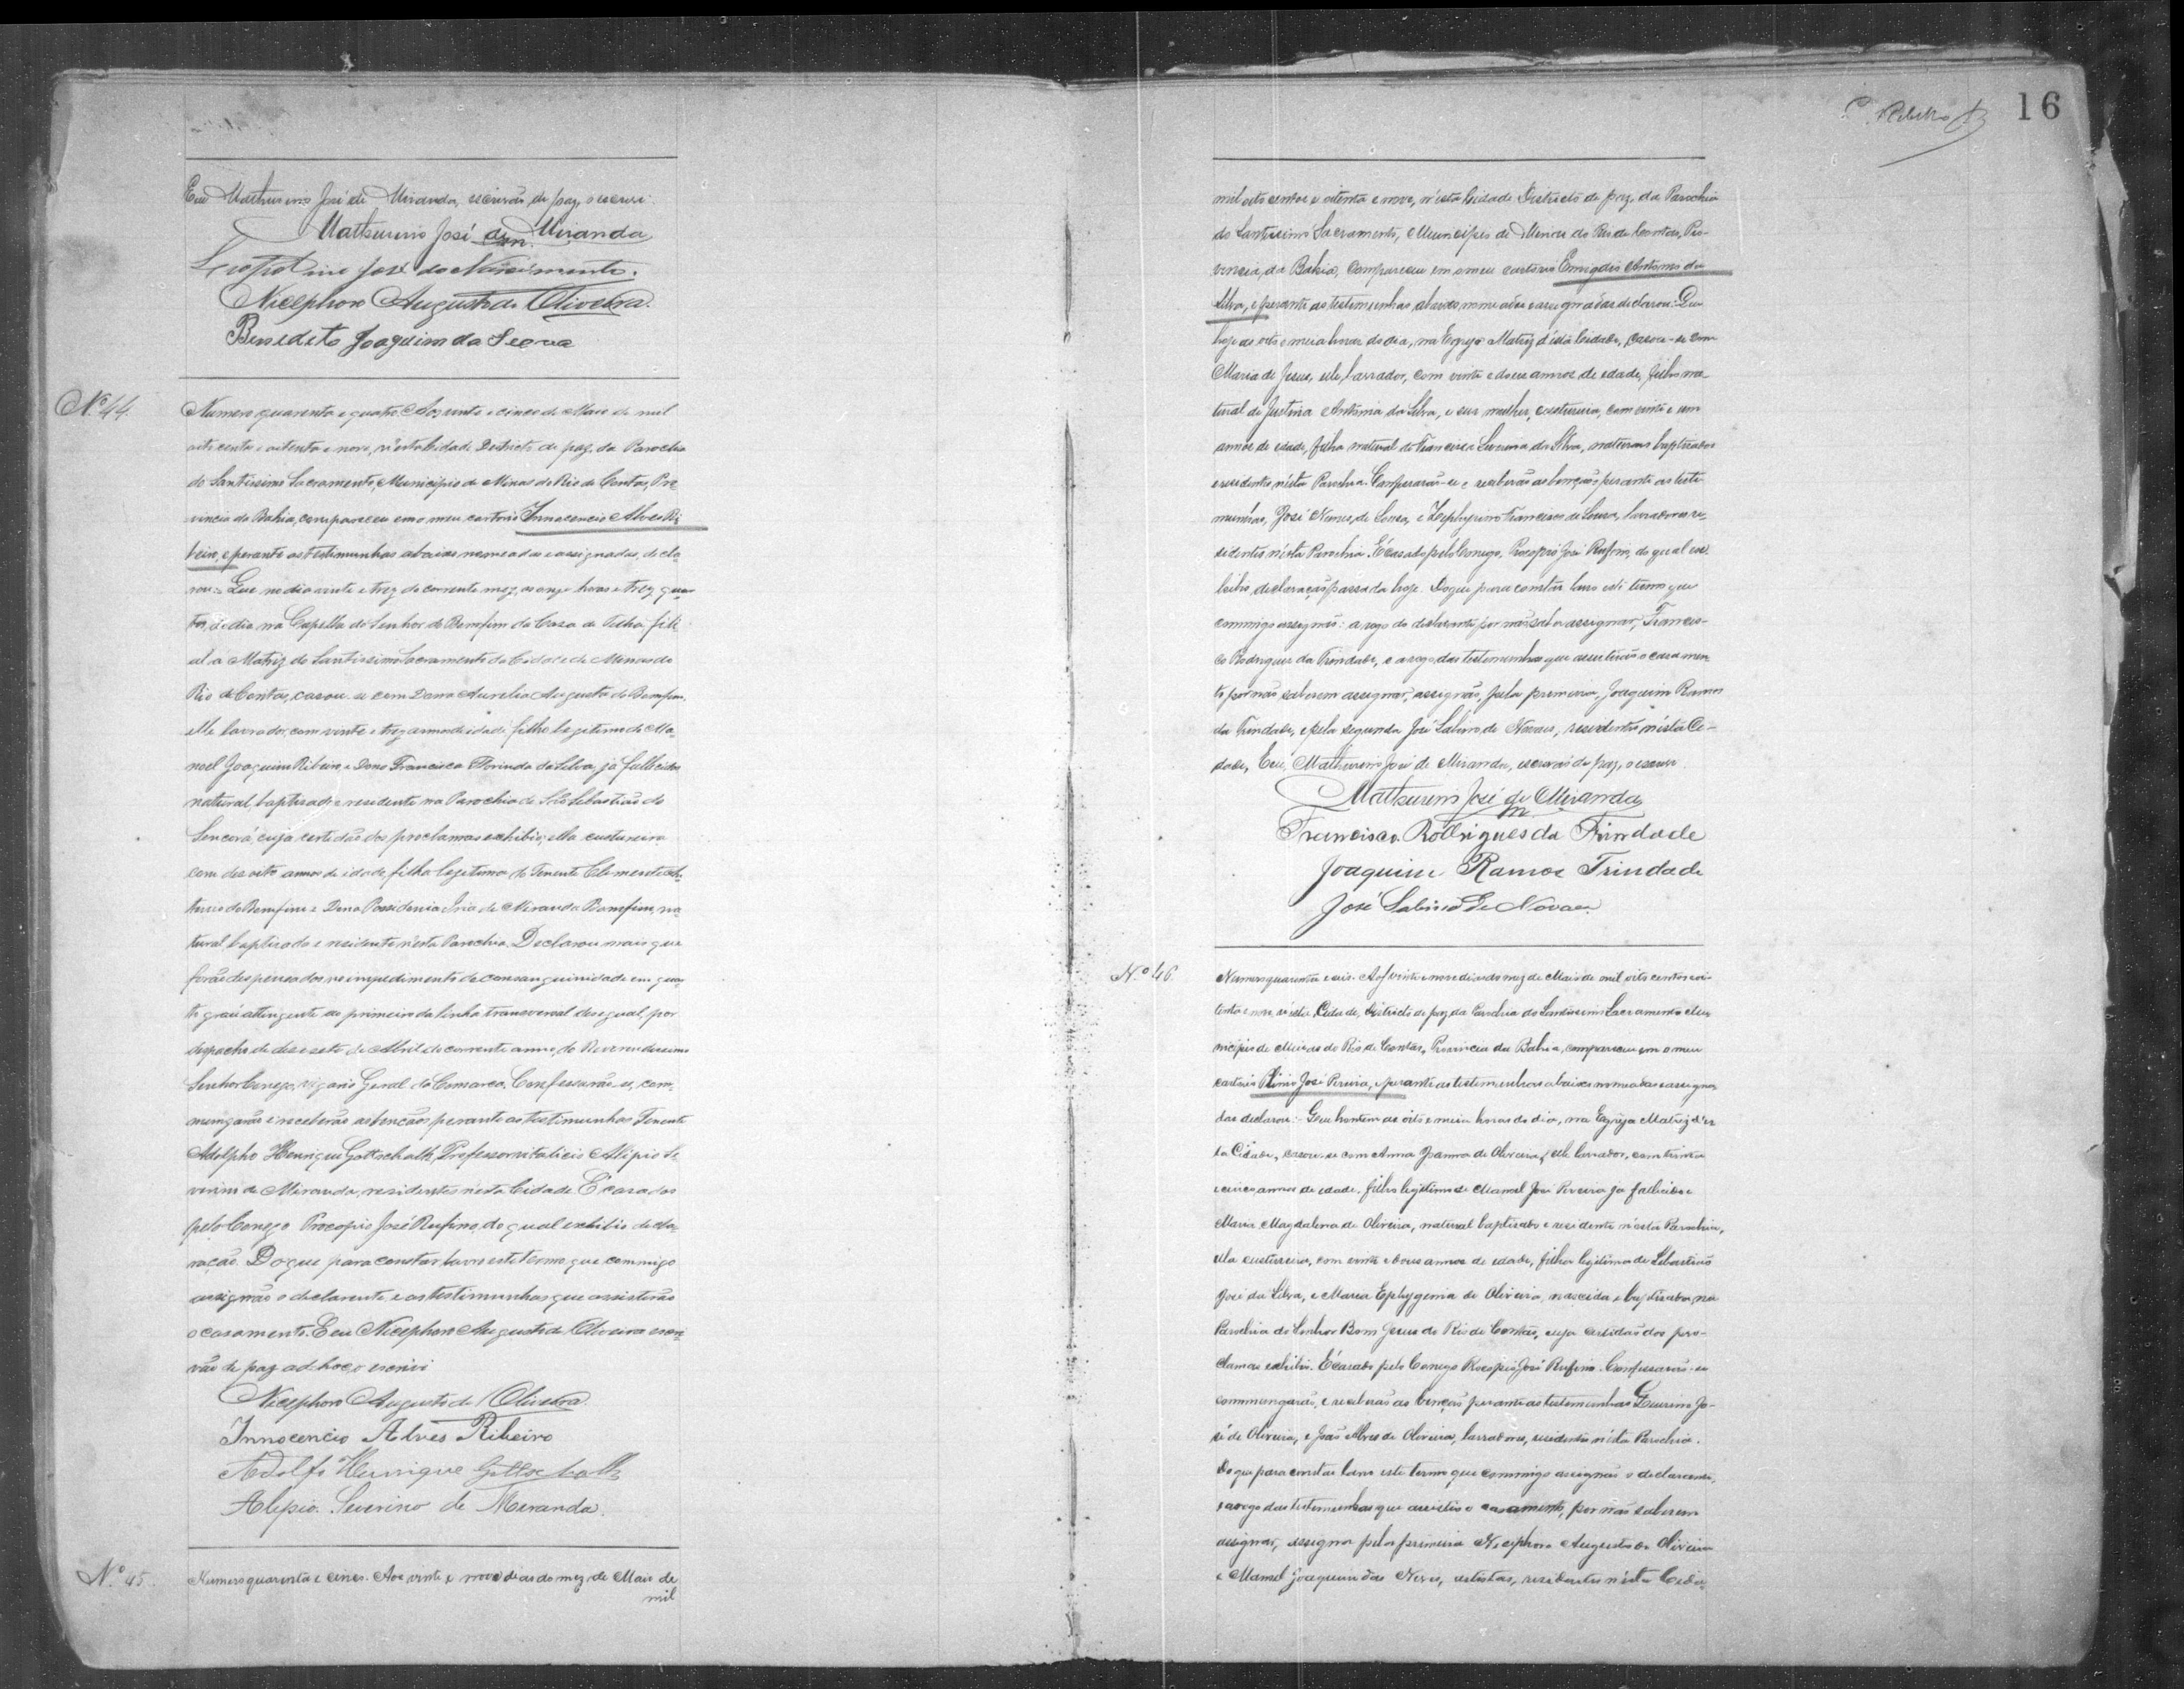 Eu Mathurino José de Miranda, escrivão de paz, o escrevi.
Mathurino José de Miranda
José do Nascimento.
Nicephoro Augusto de Oliveira.
Benedito Joaquim da
Nº 44.
Numero quarenta e quatro. Aos vinte e cinco de Maio de mil
oito cento e oitenta e nove, n'esta Cidade Districto de paz, da Parochia
do Santissimo Sacramento, Municipio de Minas do Rio de Contas, Pro
vincia da Bahia, compareceu em o meu cartorio Innocencio Alves Ri
beiro, e perante as testimunhas abaixo nomeadas e assignadas, decla
rou: Que no dia vinte e trez do corrente mez, as onze horas e trez quar
tos, do dia, na Capella do Senhor do Bomfim da Casa de Telha, fili
al a Matriz do Santissimo Sacramento da Cidade de Minas do
Rio de Contas, casou-se com Dona Aurelia Augusta do Bomfim,
elle lavrador, com vinte e trez annos de idade, filho legitimo de Ma
noel Joaquim Ribeiro, e Dona Francisca Florinda da Silva, já fallecidos
natural, baptisado e residente na Parochia de São Sebastião do
Sincorá, cuja certidão dos proclamas exhibio, ella custureira
com desoito annos de idade, filha legitima do Tenente Clemente An
tunes do Bomfim e Dona Possidonia Iria de Miranda Bomfim, na
tural baptisada e residente n'esta Parochia. Declarou mais que
forão despensados no impedimento de consanguinidade em quar
to gráu attingente ao primeiro da linha transversal desegual, por
despacho de desesete de Abril do corrente anno, do Reverendissimo
Senhor Conego, vigario Geral da Comarca. Confessarão-se, com
mungarão e receberão as bençãos perante as testimunhas Tenente
Adolpho Henrique Gottschalk, Professor vitalicio Alipio Se
verino de Miranda, residentes nesta Cidade. E' casados
pelo Conego Procopio José Rufino, do qual exhibio decla
ração. Do que para constar lavro este termo, que commigo
assignão o declarante e as testimunhas que assistirão
o casamento. Eu Nicephoro Augusto de Oliveira escri
vão de paz ad-hoc, o escrevi
Nicephoro Augusto de Oliveira.
Innocencio Alves Ribeiro
Adolfo Henrique Gottschalk
Alipio Severino de Miranda.
Nº 45.
Numero quarenta e cinco. Aos vinte e nove dias do mez de Maio de
mil
16
mil oito centos e oitenta e nove, n'esta Cidade Districto de paz, da Parochia
do Santissimo Sacramento, Municipio de Minas do Rio de Contas, Pro-
vincia da Bahia, compareceu em o meu cartorio Emigdio Antonio da
Silva, e perante as testemunhas abaixo nomeadas e assignadas declarou: Que
hoje as oito e meia horas do dia, na Egreja Matriz d'esta Cidade, casou-se com
Maria de Jesus, elle lavrador, com vinte e dous annos de idade, filho na-
tural de Justina Antonia da Silva, e sua mulher, costureira, com vinte e um
annos de idade, filha natural de Francisca da Silva, naturaes baptisados
e residentes, n'esta Parochia. Confessarão-se e receberão as bençãos perante as teste
munhas, José Nunes de Souza, e Zephyrino Francisco de Souza, lavradores re-
sidentes, n'esta Parochia. E' casado pelo Conego, Procopio José Rufino, do qual ex
hibio, declaração passada hoje. Do que para constar lavro este termo que
commigo assignão: a rogo do declarante por não saber assignar, Francis-
co Rodrigues da Trindade, e a rogo das testemunhas que assistirão o casamen
to por não saberem assignar, assignão, pela primeira, Joaquim Ramos
da Trindade, e pela segunda José Sabino de Novaes, residentes n'esta Ci-
dade, Eu, Mathurino José de Miranda, escrivão de paz, o escrevi
Mathurino José de Miranda
Francisco Rodrigues da Trindade
Joaquim Ramos Trindade
José Sabino de Novaes.
Nº 46.
Numero quarenta e seis. Aos vinte e nove dias do mez de Maio de mil oito centos e oi-
tenta e nove, n'esta Cidade, Districto de paz da Parochia do Santissimo Sacramento Mu
nicipio de Minas do Rio de Contas, Provincia da Bahia, compareceu em o meu
cartorio Plinio José Pereira, e perante as testemunhas abaixo nomeadas e assigna
das declarou: Que hontem as oito e meia horas do dia, na Egreja Matriz d'es
ta Cidade, casou-se com Anna Joanna de Oliveira, elle lavrador, com trinta
e cinco annos de idade, filho legitimo de Manoel José Pereira já fallecido e
Maria Magdalena de Oliveira, natural baptisado e residente n'esta Parochia,
ella custureira, com vinte e dous annos de idade, filha legitima de Sebastião
José da Silva, e Maria Ephygenia de Oliveira, nascida e baptisada, na
Parochia do Senhor Bom Jesus do Rio de Contas, cuja certidão dos pro-
clamas exhibio. E' casado pelo Conego Procopio José Rufino. Confessarão-se
commungarão, e receberão as benção perante as testemunhas Jo-
sé de Oliveira, e João Alves de Oliveira, lavradores, residentes n'esta Parochia.
Do que para constar lavro este termo que commigo assignão o declarante,
e a rogo das testemunhas que assistio o casamento, por não saberem
assignar, assigna pela primeira Nicephoro Augusto de Oliveira
e Manoel Joaquim das Neves, artistas, residentes n'esta Cida-